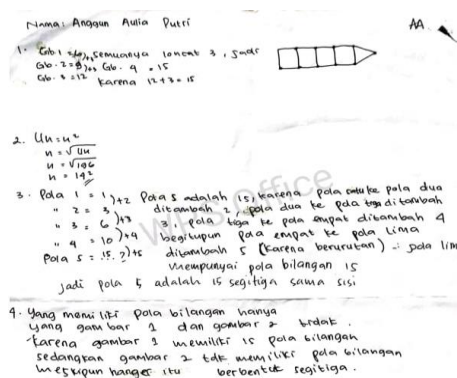 Nama: Anggun Aulia Putri
AA
1. Gb 1 = 6)+3 semuanya loncat 3, jadi
Gb. 2 = 9)+3 Gb. 4 = 15
Gb. 3 = 12 karena 12+3 = 15
2. Un = n²
n = √Un
n = √196
n = 14²
3. Pola 1 = 1)+2 Pola 5 adalah 15, karena pola satu ke pola dua
" 2 = 3 ditambah 2, pola dua ke pola tiga ditambah
" 3 = 6)+3 3, pola tiga ke pola empat ditambah 4
" 4 = 10)+4 begitupun pola empat ke pola lima
Pola 5 = 15.?)+5 ditambah 5 (karena berurutan) ∴ pola lim
mempunyai pola bilangan 15
jadi pola 5 adalah 15 segitiga sama sisi
4. Yang memiliki pola bilangan hanya
yang gambar 1 dan gambar 2 tidak.
karena gambar 1 memiliki 15 pola bilangan
sedangkan gambar 2 tdk memiliki pola bilangan
meskipun hanger itu berbentuk segitiga.
WPS Office